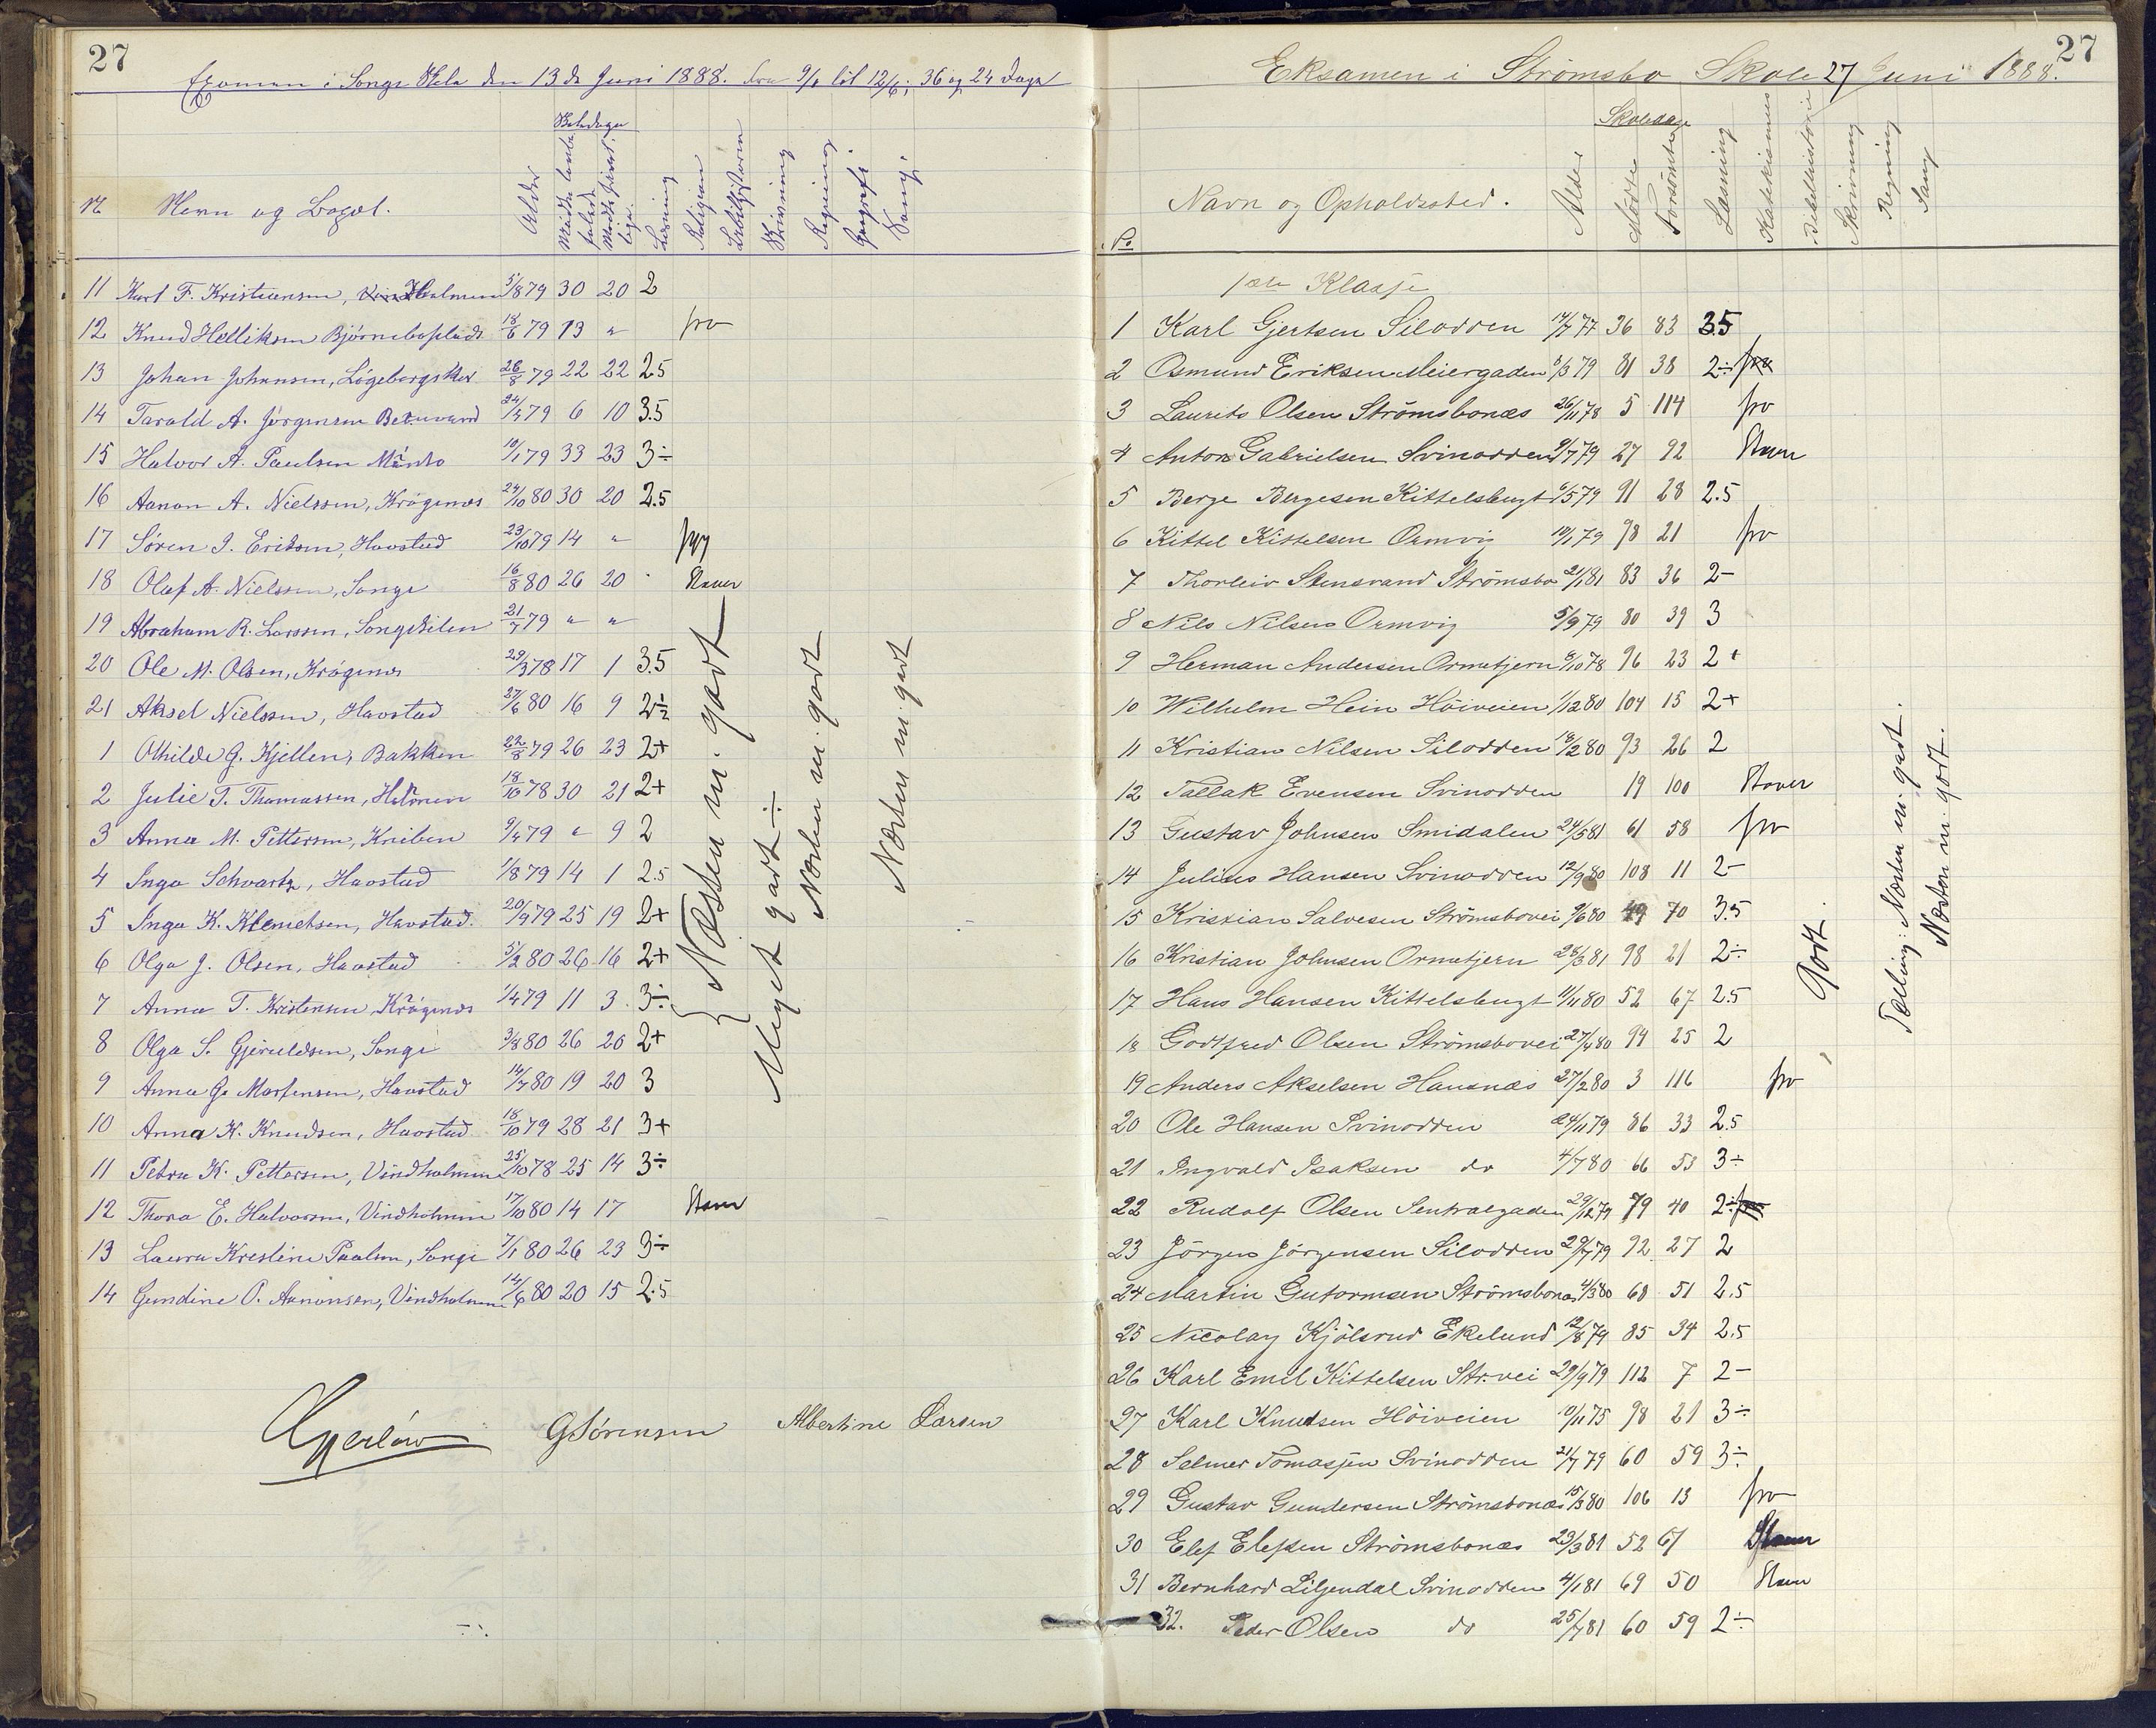 27
Examen i Songe Skole den 13de Juni 1888. fra 9/1 til 12/6; 36 og 24 Dage
Skoledage
N Navn og Bopæl. Alder Læsning Religion Bibelhistorie Skrivning Regning Geografi Sang
11 Karl F. Kristiansen, Holmen 5/8 79 30 20 2
12 Knud Helliksen Bjørneboplads 18/6 79 13 " frv
13 Johan Johansen, Løgebergskei 26/8 79 22 22 2.5
14 Tarald A. Jørgensen 24/4 79 6 10 3.5
15 Halvor A. Paulsen 10/1 79 33 23 3÷
16 Aanon A. Nielssen, Krøgenes 24/10 80 30 20 2.5
17 Søren I. Eriksen, Havstad 23/10 79 14 "
18 Olaf A. Nielssen, Songe 16/8 80 26 20 Staver
19 Abraham R. Larssen, Songekilen 21/7 79 " "
20 Ole M. Olsen, Krøgenes 29/3 78 17 1 3.5
21 Aksel Nielssen, Havstad 27/6 80 16 9 2÷
1 Othilde G. Kjellen, Bakken 22/8 79 26 23 2+
2 Julie T. Thomassen, 18/10 78 30 21 2+
3 Anna M. Pettersen, Kniben 9/4 79 " 9 2
4 Inga Schvartz, Havstad 1/8 79 14 1 2.5
5 Inga K. Klemetsen, Havstad. 20/9 79 25 19 2+
6 Olga J. Olsen, Havstad 5/2 80 26 16 2+
7 Anna T. Kristensen, Krøgenes 1/4 79 11 3 3÷
8 Olga S. Gjeruldsen, Songe 3/8 80 26 20 2+
9 Anna G. Mortensen, Havstad 14/7 80 19 20 3
10 Anna K. Knudsen, Havstad 18/10 79 28 21 3+
11 Petra K. Pettersen, Vindholmen 25/10 78 25 14 3÷
12 Thora E. Halvorsen, Vindholmen 17/10 80 14 17 Staver
13 Laura Kristine Paulsen, Songe 7/1 80 26 23 3÷
14 Gundine O. Aanonsen, Vindholmen 14/6 80 20 15 2.5
Næsten m. godt
Meget godt ÷
Næsten m. godt
Næsten m. godt
GSørensen Albertine Larsen
27
Eksamen i Strømsbo Skole 27 Juni 1888.
Skoledage
No Navn og Opholdssted. Alder Mødte Forsømte Læsning Katekismus Bibelhistorie Skrivning Regning Sang
1ste Klasse
1 Karl Gjertsen Silodden 14/7 77 36 83 3.5
2 Osmund Eriksen Meiergaden 8/3 79 81 38 2÷ frv
3 Laurits Olsen Strømsbonæs 26/11 78 5 114 frv
4 Anton Gabrielsen Svinodden 9/7 79 27 92 Staver
5 Berge Bergesen Kittelsbugt 6/5 79 91 28 2.5
6 Kittel Kittelsen Ormvig 10/1 79 98 21 frv
7 Thorleiv Stensvand Strømsbo 21/1 81 83 36 2-
8 Nils Nilsen Ormvig 5/9 79 80 39 3
9 Herman Andersen Ormetjern 8/10 78 96 23 2+
10 Wilhelm Hein Høiveien 1/12 80 104 15 2+
11 Kristian Nilsen Silodden 18/2 80 93 26 2
12 Tallak Evensen Svinodden 19 100 Staver
13 Gustav Johnsen Smidalen 24/5 81 61 58 frv
14 Julius Hansen Svinodden 12/9 80 108 11 2-
15 Kristian Salvesen Strømsbovei 9/6 80 49 70 3.5
16 Kristian Johnsen Ormetjern 28/3 81 98 21 2÷
17 Hans Hansen Kittelsbugt 11/11 80 52 67 2.5
18 Godtfred Olsen Strømsbovei 27/4 80 94 25 2
19 Anders Akselsen Hausnæs 27/2 80 3 116 frv
20 Ole Hansen Svinodden 24/11 79 86 33 2.5
21 Ingvald Isaksen do 4/7 80 66 53 3÷
22 Rudolf Olsen Sentralgaden 29/12 79 79 40 2÷ frv
23 Jørgen Jørgensen Silodden 29/7 79 92 27 2
24 Martin Gutormsen Strømsbonæs 4/3 80 68 51 2.5
25 Nicolay Kjölsrud Ekelund 12/8 79 85 34 2.5
26 Karl Emil Kittelsen Str.vei 29/9 79 112 7 2-
27 Karl Knudsen Höiveien 10/11 75 98 21 3÷
28 Selmer Tomasjen Svinodden 21/7 79 60 59 3÷
29 Gustav Gundersen Strömsbonæs 15/3 80 106 13 frv
30 Elef Elefsen Strömsbonæs 23/3 81 52 67 Staver
31 Bernhard Liljendal Svinodden 4/1 81 69 50 Staver
32. Peder Olsen do 25/7 81 60 59 2÷
Godt.
Tælling: Næsten m. godt.
Næsten m. godt.